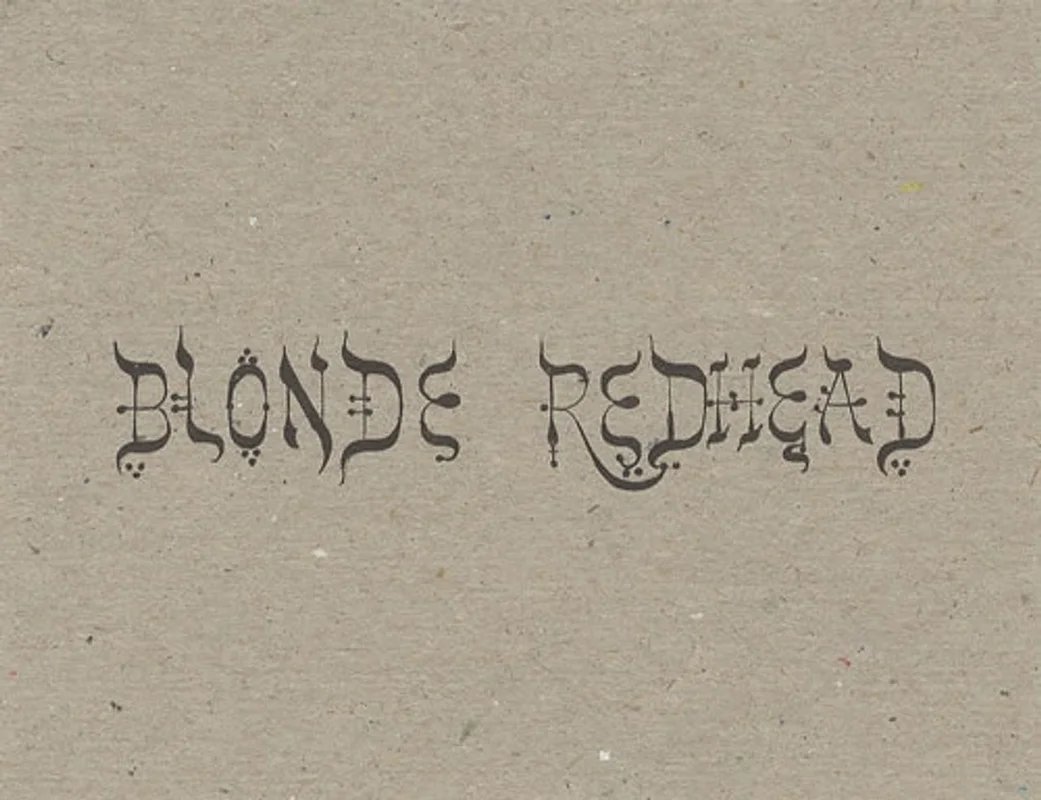 BLONDE REDHEAD